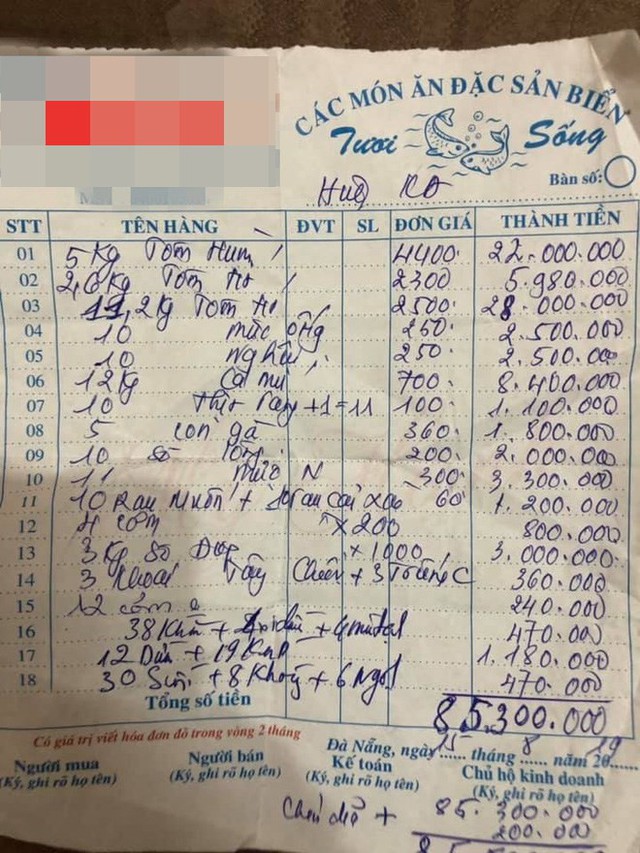 CÁC MÓN ĂN ĐẶC SẢN BIỂN
Tươi Sống
Bàn số:
STT TÊN HÀNG ĐVT SL ĐƠN GIÁ THÀNH TIỀN
01 5 Kg Tôm Hùm 4400 22.000.000
02 2,6 Kg Tôm 2300 5.980.000
03 11,2 Kg Tôm 2500 28.000.000
04 10 mực 250 2.500.000
05 10 nghêu 250 2.500.000
06 12 Kg Cá mú 700 8.400.000
07 10 Thịt + 1 = 11 100 1.100.000
08 5 con gà 360 1.800.000
09 10 200 2.000.000
10 11 mực N 300 3.300.000
11 10 Rau Muốn + 10 rau cải xào 60 1.200.000
12 4 cơm x 200 800.000
13 3 Kg Sò x 1000 3.000.000
14 3 Khoai Tây Chiên + 3 Trứng C 360.000
15 12 cơm 240.000
16 38 Khăn + + 470.000
17 12 Dừa + 19 1.180.000
18 30 Suối + 8 + 6 470.000
Tổng số tiền 85.300.000
Có giá trị viết hóa đơn đỏ trong vòng 2 tháng
Đà Nẵng, ngày 15 tháng 8 năm 2019
Người mua Người bán Kế toán Chủ hộ kinh doanh
(Ký, ghi rõ họ tên) (Ký, ghi rõ họ tên) (Ký, ghi rõ họ tên) (Ký, ghi rõ họ tên)
+ 85.300.000
200.000